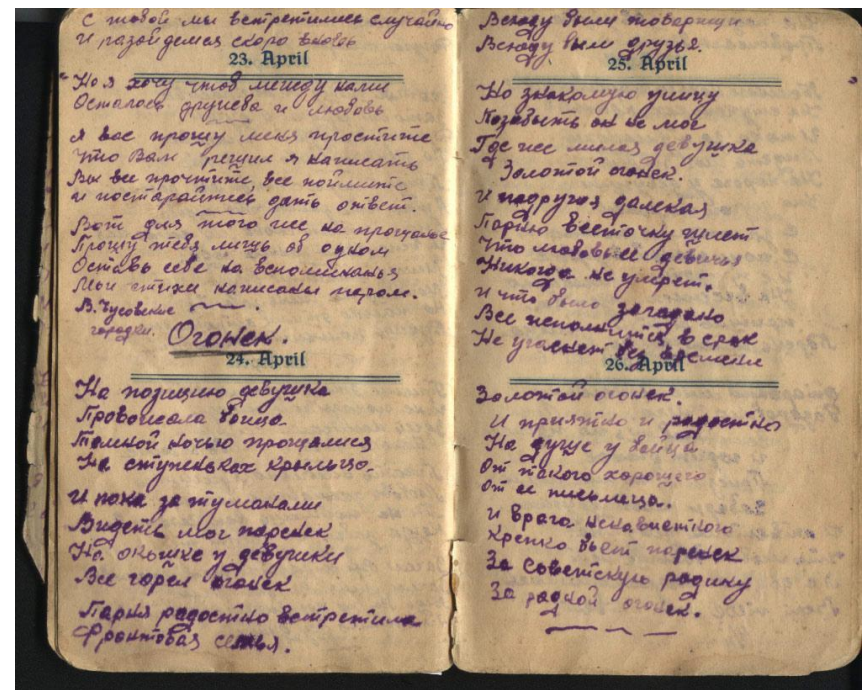 С тобой мы встретились случайно
И разойдемся скоро вновь
23. April
Но я хочу чтоб между нами
Осталось дружева и любовь
Я вас прошу меня простите
Что Вам решил я написать
Вы все прочтите, все поймите
и постарайтесь дать ответ.
Вот для того же на прощанье
Прошу тебя лишь об одном
Оставь себе на вспоминанья
Мои стихи написаны пером.
В. Чусовские
городки.
Огонек.
24. April
На позицию девушка
Провожала бойца
Темной ночью прощалися
На ступеньках крыльца.
И пока за туманами
Видеть мог паренек
На окошке у девушки
Все горел огонек
Парня радостно встретила
Фронтовая семья.
Всюду были товарищи
Всюду были друзья.
25. April
Но знакомую улицу
Позабыть он не мог
Где же милая девушка
Золотой огонек.
И подружка далекая
Парню весточку шлет
Что любовь ее девичья
Никогда не умрет.
И что было загадано
Все исполнится в срок
Не угаснет без времени
26. April
Золотой огонек.
И приятно и радостно
На душе у бойца
От такого хорошего
От ее письмеца.
И врага ненавистного
Крепко бьет паренек
За Советскую родину
За родной огонек.